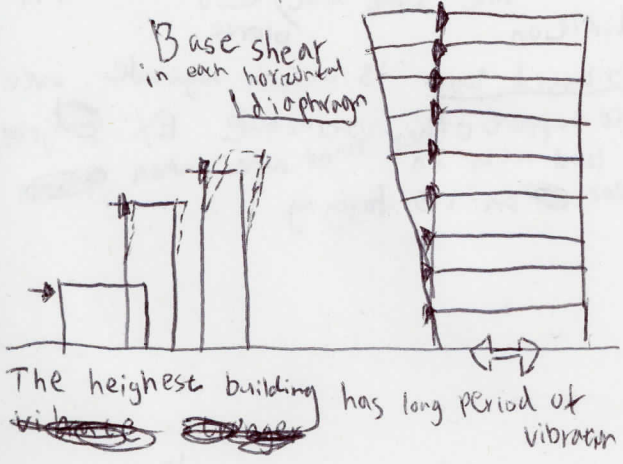 Base shear
in each horizontal
diaphragm
The heighest building has long period of
vibration